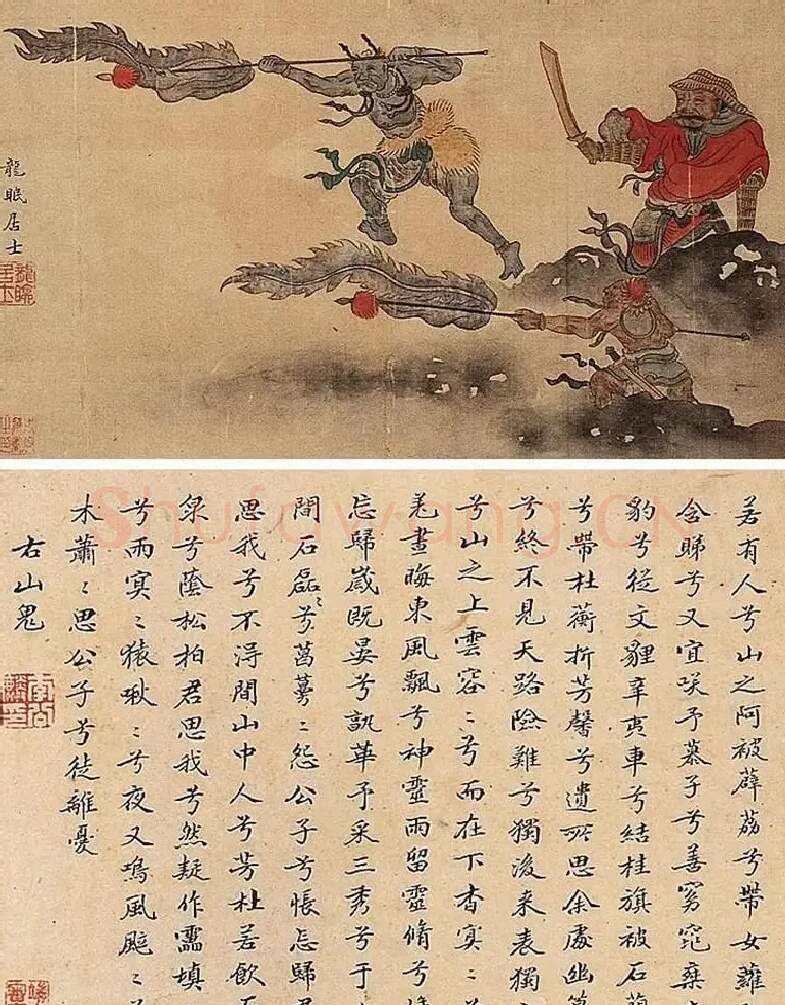 龍眠居士
若有人兮山之阿被薜荔兮帶女蘿
含睇兮又宜咲予慕子兮善窈窕乗
豹兮從文貍辛夷車兮結桂旗被石
兮帶杜蘅折芳馨兮遺所思余處幽篁
兮終不見天路險難兮獨後来表獨立
兮山之上雲容〻兮而在下杳冥〻兮
羌晝晦東風飄兮神靈雨留靈脩兮
忘歸歲既晏兮孰華予采三秀兮于
間石磊〻兮葛蔓〻怨公子兮悵忘歸君
思我兮不得間山中人兮芳杜若飲石
泉兮蔭松柏君思我兮然疑作靁填
兮雨冥〻猿啾〻兮夜又鳴風颮〻兮
木蕭〻思公子兮徒離憂
右山鬼
Shufawang.CN